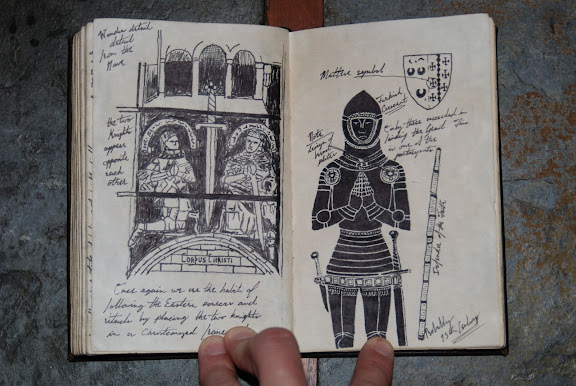 Wonder detail
detail
from the
Nave
the two
Knights
appear
opposite
each
other
CORPUS CHRISTI
Once again we see the habit of
following the Eastern sources and
rituals by placing the two knights
in a Christianized
Matthew symbol
Turkish
Crescent
Note
only three recorded in
one of the
Defender of the Faith
15th Century